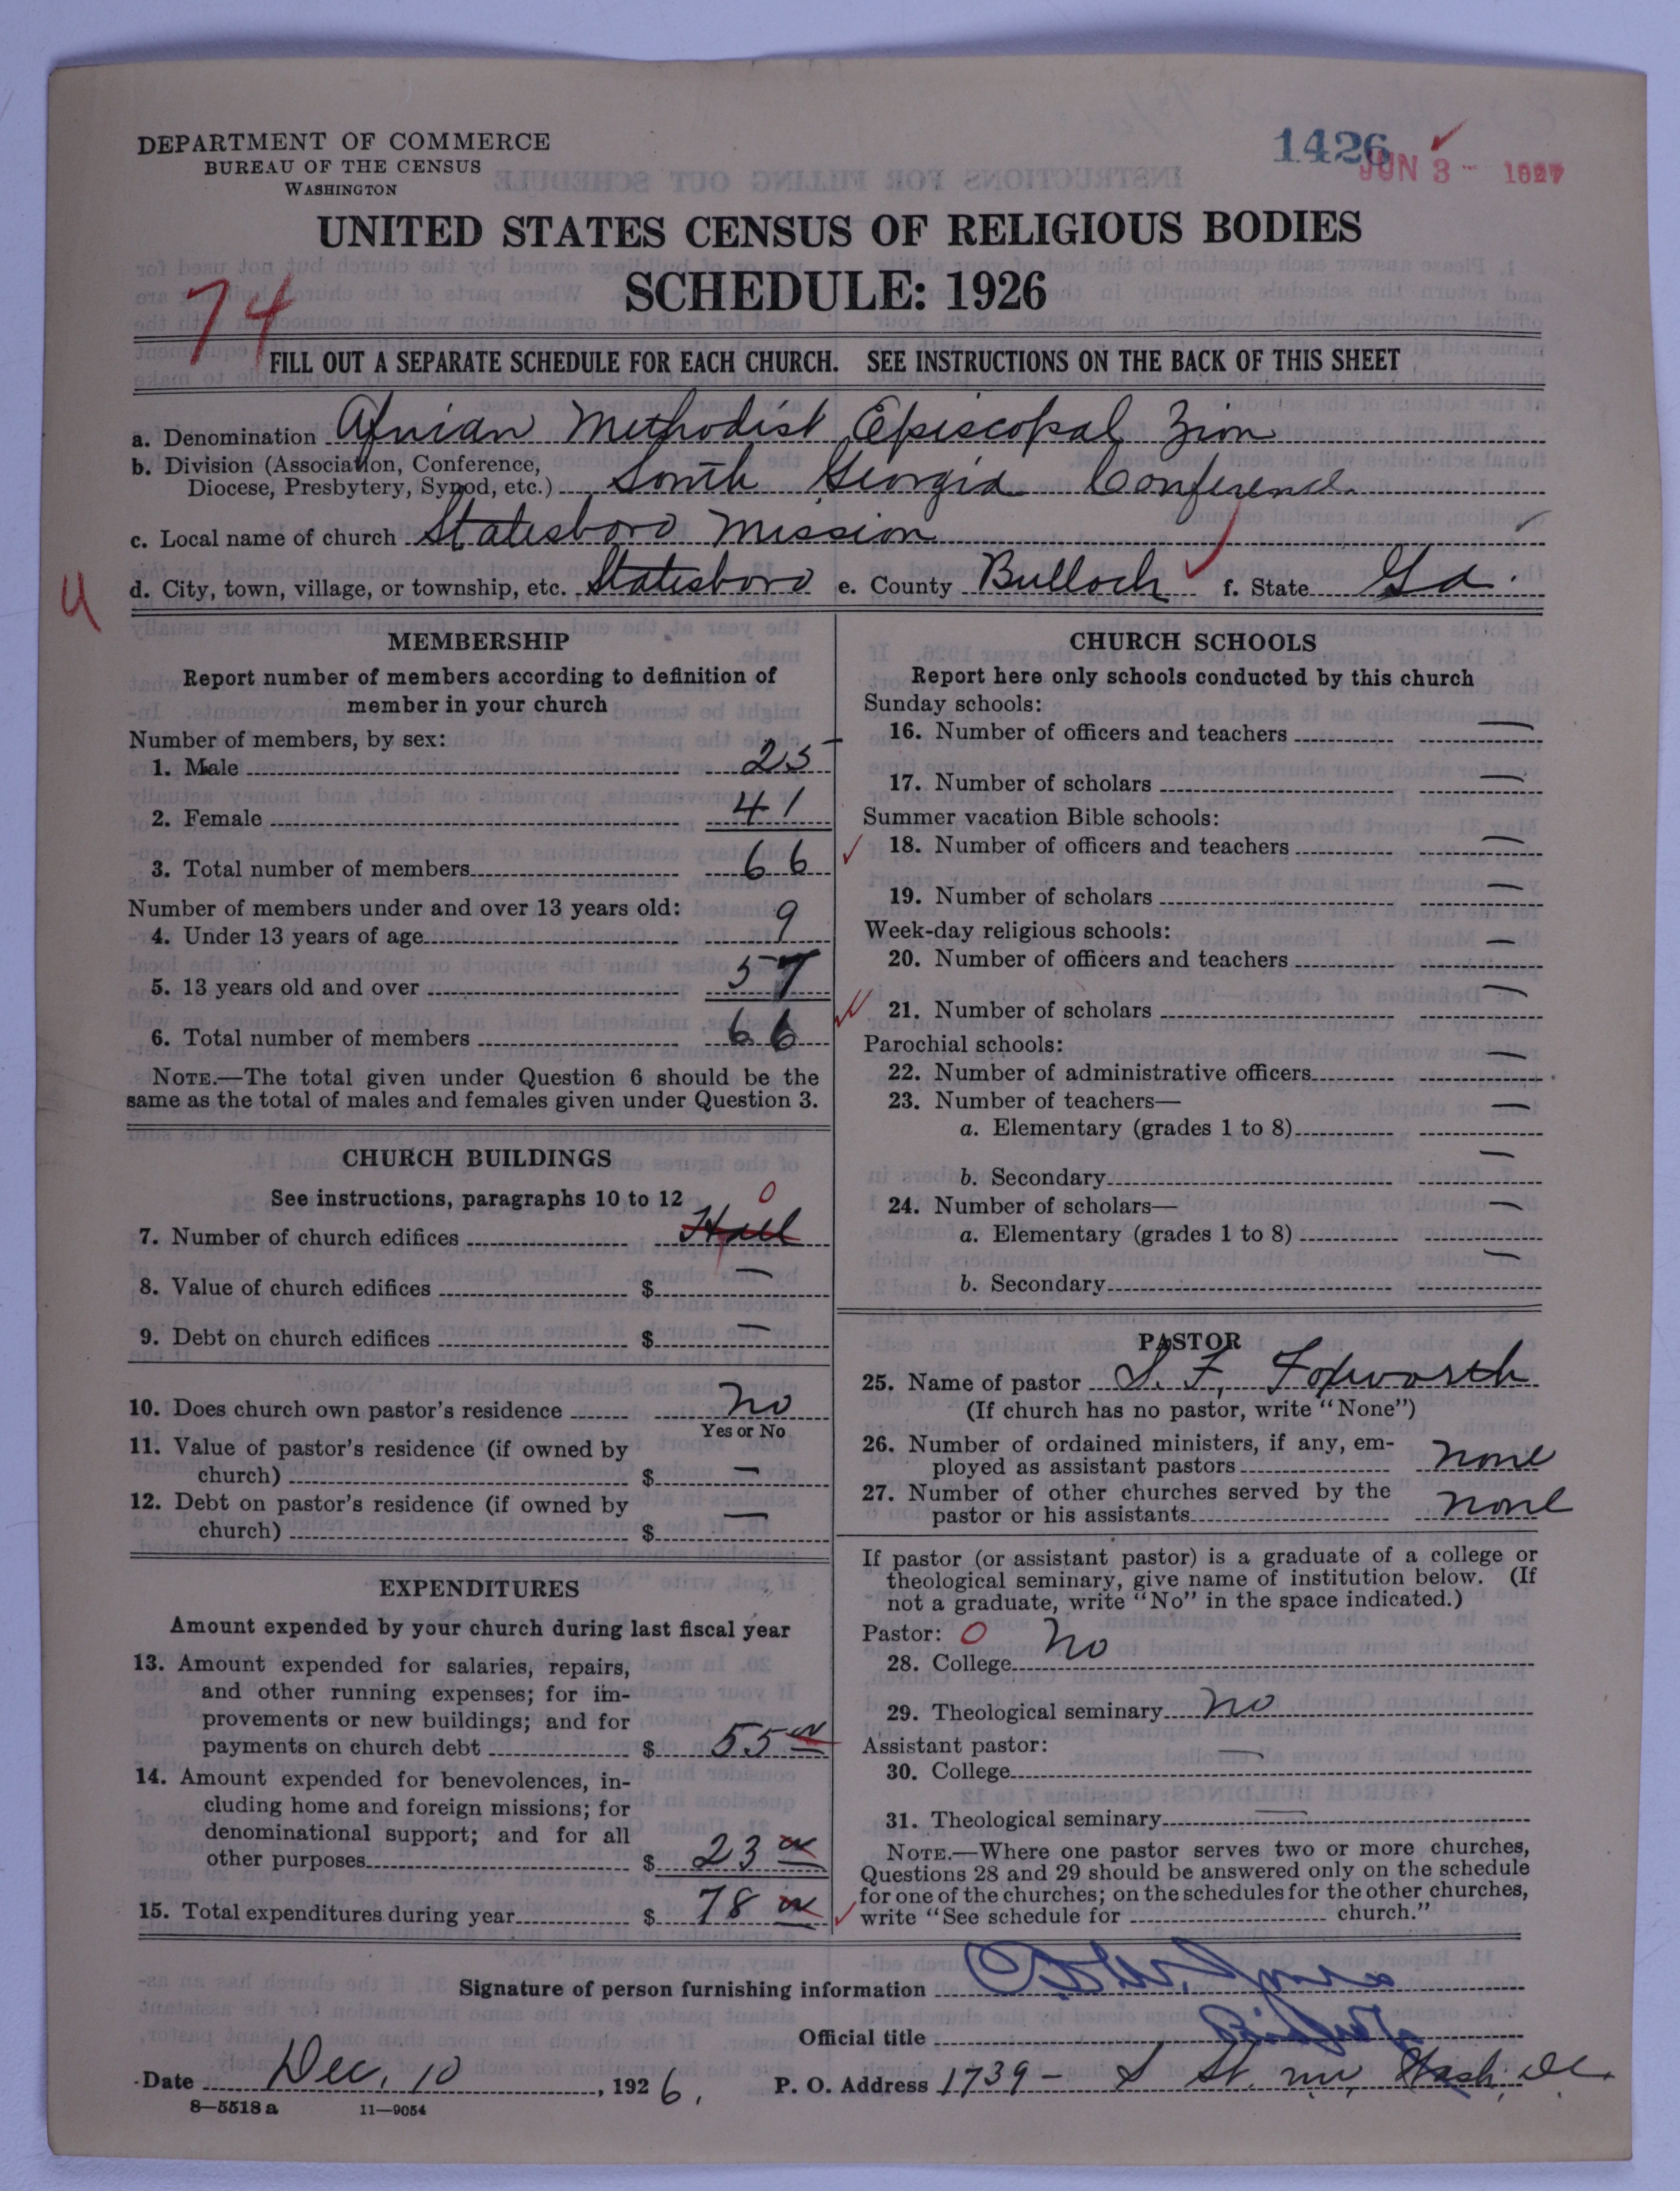 DEPARTMENT OF COMMERCE
BUREAU OF THE CENSUS
WASHINGTON
1426
JUN 3 - 1927
UNITED STATES CENSUS OF RELIGIOUS BODIES
SCHEDULE: 1926
74
FILL OUT A SEPARATE SCHEDULE FOR EACH CHURCH. SEE INSTRUCTIONS ON THE BACK OF THIS SHEET
a. Denomination African Methodist Episcopal Zion
b. Division (Association, Conference,
Diocese, Presbytery, Synod, etc.) South Georgia Conference
c. Local name of church Statesboro Mission
d. City, town, village, or township, etc. Statesboro e. County Bulloch f. State Ga.
MEMBERSHIP
Report number of members according to definition of
member in your church
Number of members, by sex:
1. Male 25
2. Female 41
3. Total number of members 66
Number of members under and over 13 years old:
4. Under 13 years of age 9
5. 13 years old and over 57
6. Total number of members 66
NOTE.—The total given under Question 6 should be the
same as the total of males and females given under Question 3.
CHURCH BUILDINGS
See instructions, paragraphs 10 to 12 0
7. Number of church edifices Hall
8. Value of church edifices $ —
9. Debt on church edifices $ —
10. Does church own pastor's residence No
Yes or No
11. Value of pastor's residence (if owned by
church) $ —
12. Debt on pastor's residence (if owned by
church) $ —
EXPENDITURES
Amount expended by your church during last fiscal year
13. Amount expended for salaries, repairs,
and other running expenses; for im-
provements or new buildings; and for
payments on church debt $ 55
14. Amount expended for benevolences, in-
cluding home and foreign missions; for
denominational support; and for all
other purposes $ 23
15. Total expenditures during year $ 78
CHURCH SCHOOLS
Report here only schools conducted by this church
Sunday schools:
16. Number of officers and teachers —
17. Number of scholars —
Summer vacation Bible schools:
18. Number of officers and teachers —
19. Number of scholars —
Week-day religious schools:
20. Number of officers and teachers —
21. Number of scholars —
Parochial schools:
22. Number of administrative officers —
23. Number of teachers—
a. Elementary (grades 1 to 8) —
b. Secondary —
24. Number of scholars—
a. Elementary (grades 1 to 8) —
b. Secondary —
PASTOR
25. Name of pastor S. F. Foxworth
(If church has no pastor, write "None")
26. Number of ordained ministers, if any, em-
ployed as assistant pastors none
27. Number of other churches served by the
pastor or his assistants none
If pastor (or assistant pastor) is a graduate of a college or
theological seminary, give name of institution below. (If
not a graduate, write "No" in the space indicated.)
Pastor: 0
28. College No
29. Theological seminary No
Assistant pastor:
30. College —
31. Theological seminary —
NOTE.—Where one pastor serves two or more churches,
Questions 28 and 29 should be answered only on the schedule
for one of the churches; on the schedules for the other churches,
write "See schedule for church."
Signature of person furnishing information
Official title
Date Dec. 10, 1926. P. O. Address 1739 - S St. nw, Wash, DC.
8—5518 a 11—9054